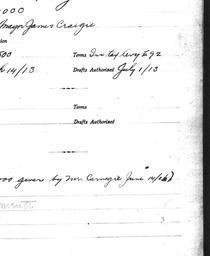 000
Mayor James Craigie
ion
500 Terms Inc. tax levy £92
14/13 Drafts Authorized July 1/13
Terms
Drafts Authorized
000 given by Mr. Carnegie June 14/16)